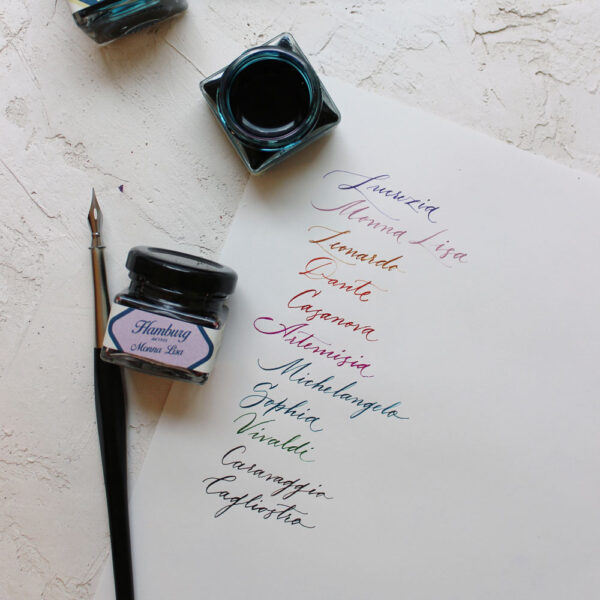 Lucrezia
Monna Lisa
Leonardo
Dante
Casanova
Artemisia
Michelangelo
Sophia
Vivaldi
Caravaggio
Cagliostro
Hamburg
Monna Lisa